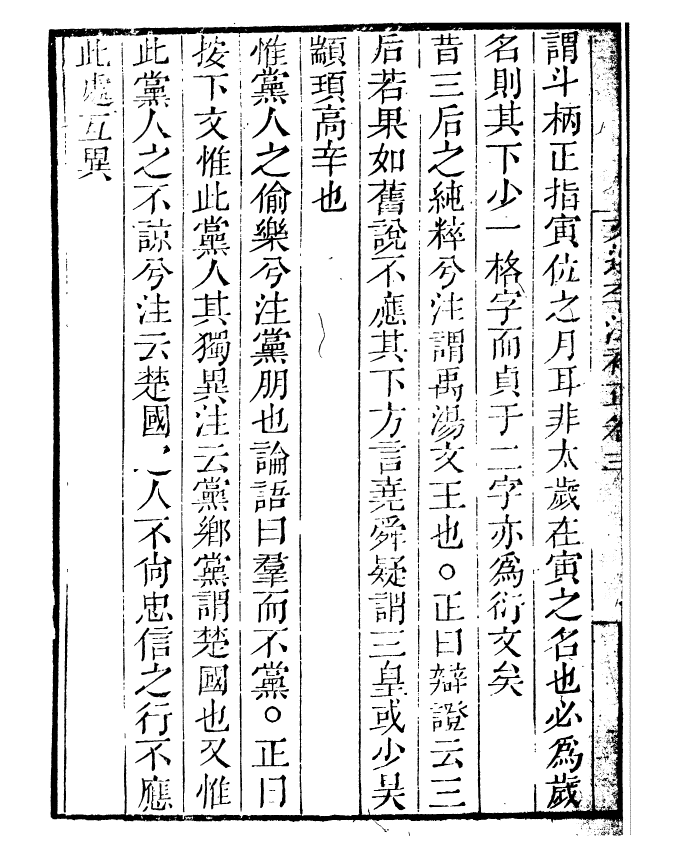 謂斗柄正指寅位之月耳非太歲在寅之名也必爲歲
名則其下少一格字而貞于二字亦爲衍文矣
昔三后之純粹兮注謂禹湯文王也○正曰辯證云三
后若果如舊說不應其下方言堯舜疑謂三皇或少昊
顓頊高辛也
惟黨人之偷樂兮注黨朋也論語曰羣而不黨○正曰
按下文惟此黨人其獨異注云黨鄉黨謂楚國也又惟
此黨人之不諒兮注云楚國之人不尙忠信之行不應
此處互異